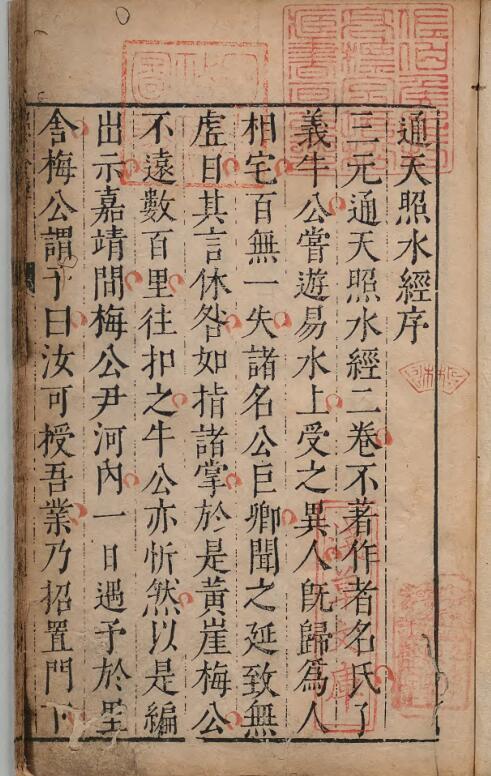 通天照水經序
三元通天照水經二卷不著作者名氏了
義牛公嘗遊易水上受之異人旣歸爲人
相宅百無一失諸名公巨卿聞之延致無
虗日其言休咎如指諸掌於是黃崖梅公
不遠數百里往扣之牛公亦忻然以是編
出示嘉靖間梅公尹河內一日遇予於里
舍梅公謂予曰汝可授吾業乃招置門下